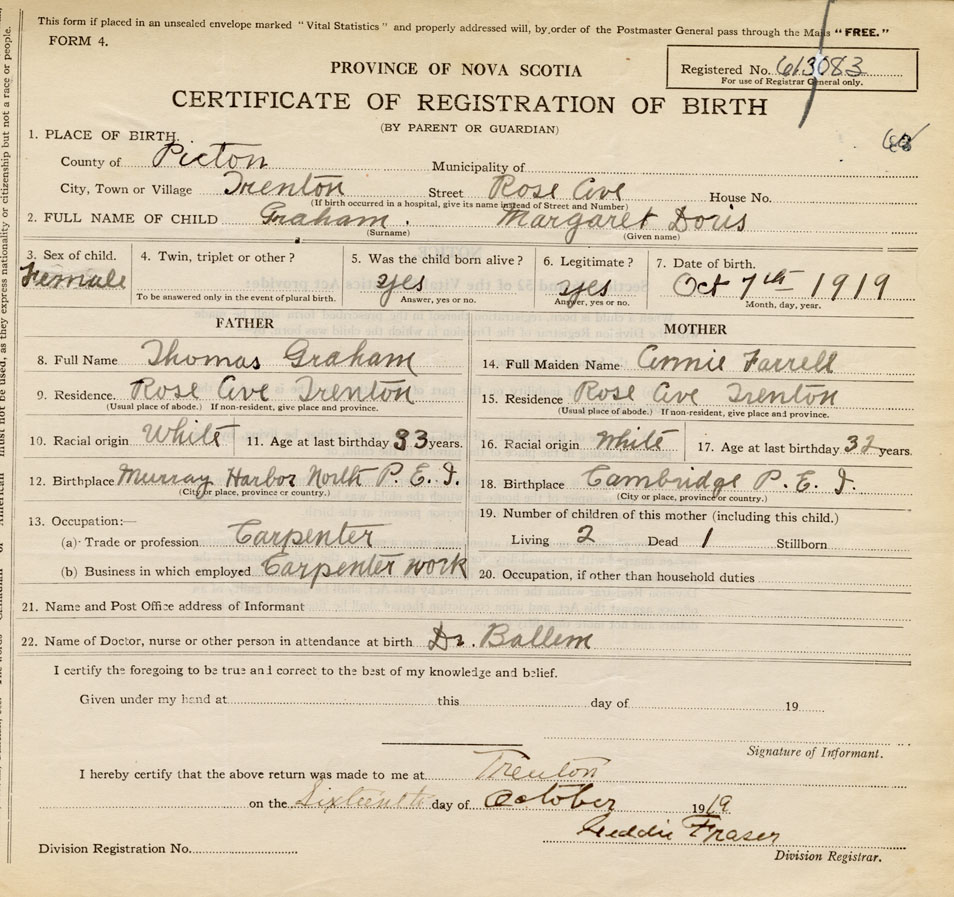 This form if placed in an unsealed envelope marked "Vital Statistics" and properly addressed will, by order of the Postmaster General pass through the Mails "FREE."
FORM 4.
Registered No. 613083
For use of Registrar General only.
PROVINCE OF NOVA SCOTIA
CERTIFICATE OF REGISTRATION OF BIRTH
(BY PARENT OR GUARDIAN)
1. PLACE OF BIRTH.
County of Picton Municipality of
City, Town or Village Trenton Street Rose Ave House No.
(If birth occurred in a hospital, give its name instead of Street and Number)
2. FULL NAME OF CHILD Graham. Margaret Doris
(Surname) (Given name)
3. Sex of child. 4. Twin, triplet or other? 5. Was the child born alive? 6. Legitimate? 7. Date of birth.
Female yes yes Oct 7th 1919
To be answered only in the event of plural birth. Answer, yes or no. Answer, yes or no. Month, day, year.
FATHER MOTHER
8. Full Name Thomas Graham 14. Full Maiden Name Annie Farrell
9. Residence. Rose Ave Trenton 15. Residence Rose Ave Trenton
(Usual place of abode.) If non-resident, give place and province. (Usual place of abode.) If non-resident, give place and province.
10. Racial origin White 11. Age at last birthday 33 years. 16. Racial origin White 17. Age at last birthday 32 years.
12. Birthplace Murray Harbor North P. E. I. 18. Birthplace Cambridge P. E. I.
(City or place, province or country.) (City or place, province or country.)
13. Occupation:— 19. Number of children of this mother (including this child.)
(a) Trade or profession Carpenter Living 2 Dead 1 Stillborn
(b) Business in which employed Carpenter work 20. Occupation, if other than household duties
21. Name and Post Office address of Informant
22. Name of Doctor, nurse or other person in attendance at birth Dr. Ballem
I certify the foregoing to be true and correct to the best of my knowledge and belief.
Given under my hand at this day of 19
Signature of Informant.
I hereby certify that the above return was made to me at Trenton
on the Sixteenth day of October 1919
Geddie Fraser
Division Registration No. Division Registrar.